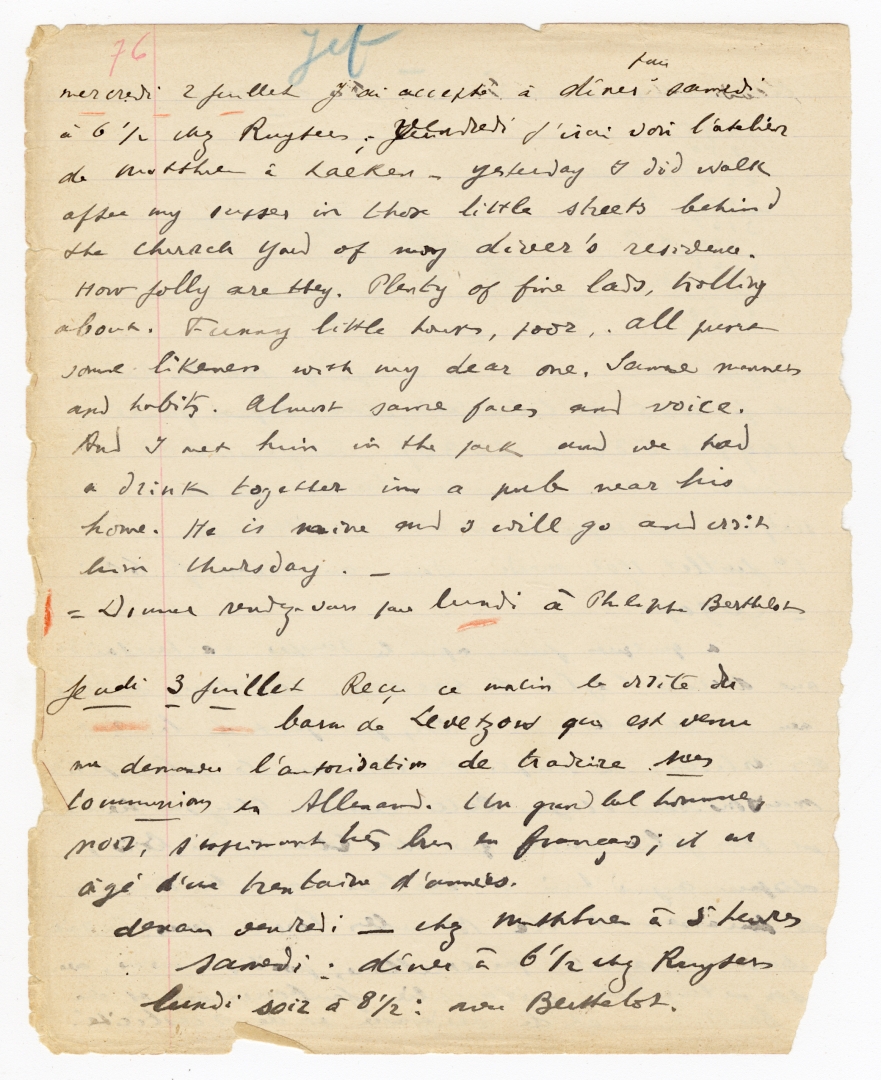 76 Jef
mercredi 2 juillet J'ai accepté à dîner pour samedi
à 6 1/2 chez Ruyters ; vendredi j'irai voir l'atelier
de Matthieu à Laeken – yesterday I did walk
after my supper in those little streets behind
the church yard of my diver's residence.
How jolly are they. Plenty of fine lads, trolling
about. Funny little hours, poor, . all
some likeness with my dear one. Same manners
and habits. Almost same faces and voice.
And I met him in the park and we had
a drink together in a pub near his
home. He is mine and I will go and visit
him thursday. –
= Donner rendez-vous pour lundi à Philippe Berthelot
jeudi 3 juillet Reçu ce matin la visite du
baron de Levetzow qui est venu
me demander l'autorisation de traduire mes
Communions en Allemand. Un grand bel homme,
noir, s'exprimant très bien en français ; il est
âgé d'une trentaine d'années.
demain vendredi — chez Matthieu à 5 heures
samedi : dîner à 6 1/2 chez Ruyters
lundi soir à 8 1/2 : avec Berthelot.